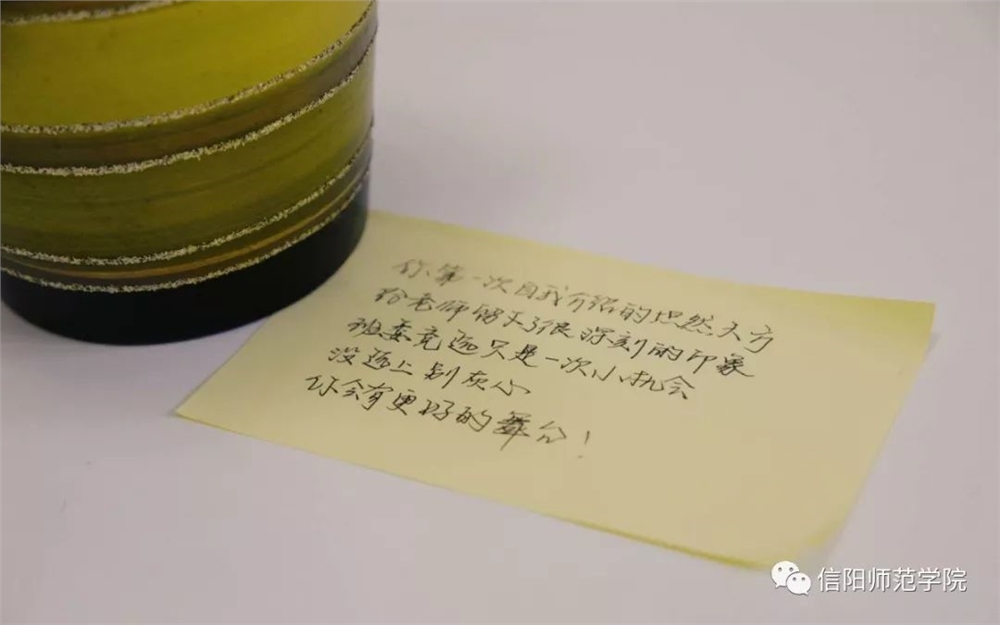 你第一次自我介绍的坦然大方
给老师留下了很深刻的印象
班委竞选只是一次小机会
没选上别灰心
你会有更好的舞台！
信阳师范学院